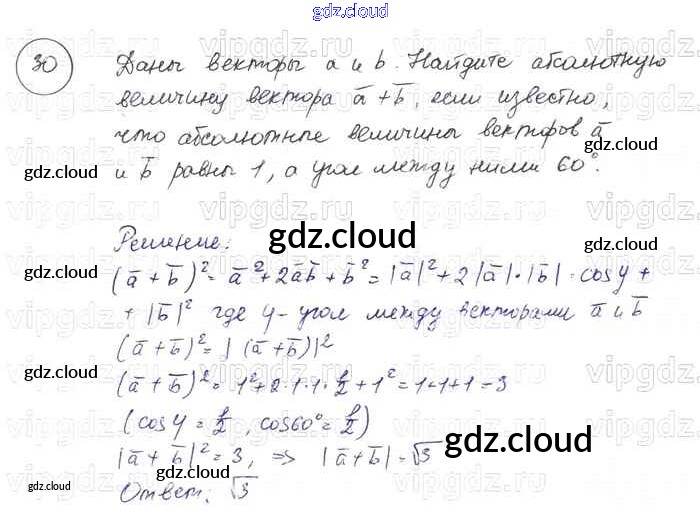 gdz.cloud
30 Даны векторы a и b. Найдите абсолютную
величину вектора a̅ + b̅, если известно,
что абсолютные величины векторов a̅
и b̅ равны 1, а угол между ними 60°.
gdz.cloud
gdz.cloud
gdz.cloud
Решение:
gdz.cloud
(a̅ + b̅)² = a̅² + 2a̅b̅ + b̅² = |a̅|² + 2|a̅|·|b̅|·cos φ +
+ |b̅|² где φ - угол между векторами a̅ и b̅
gdz.cloud
(a̅ + b̅)² = |(a̅ + b̅)|²
gdz.cloud
gdz.cloud
(a̅ + b̅)² = 1² + 2·1·1·1/2 + 1² = 1+1+1 = 3
(cos φ = 1/2, cos60° = 1/2)
gdz.cloud
|a̅ + b̅|² = 3, => |a̅ + b̅| = √3
gdz.cloud
gdz.cloud
Ответ: √3
gdz.cloud
vipgdz.ru